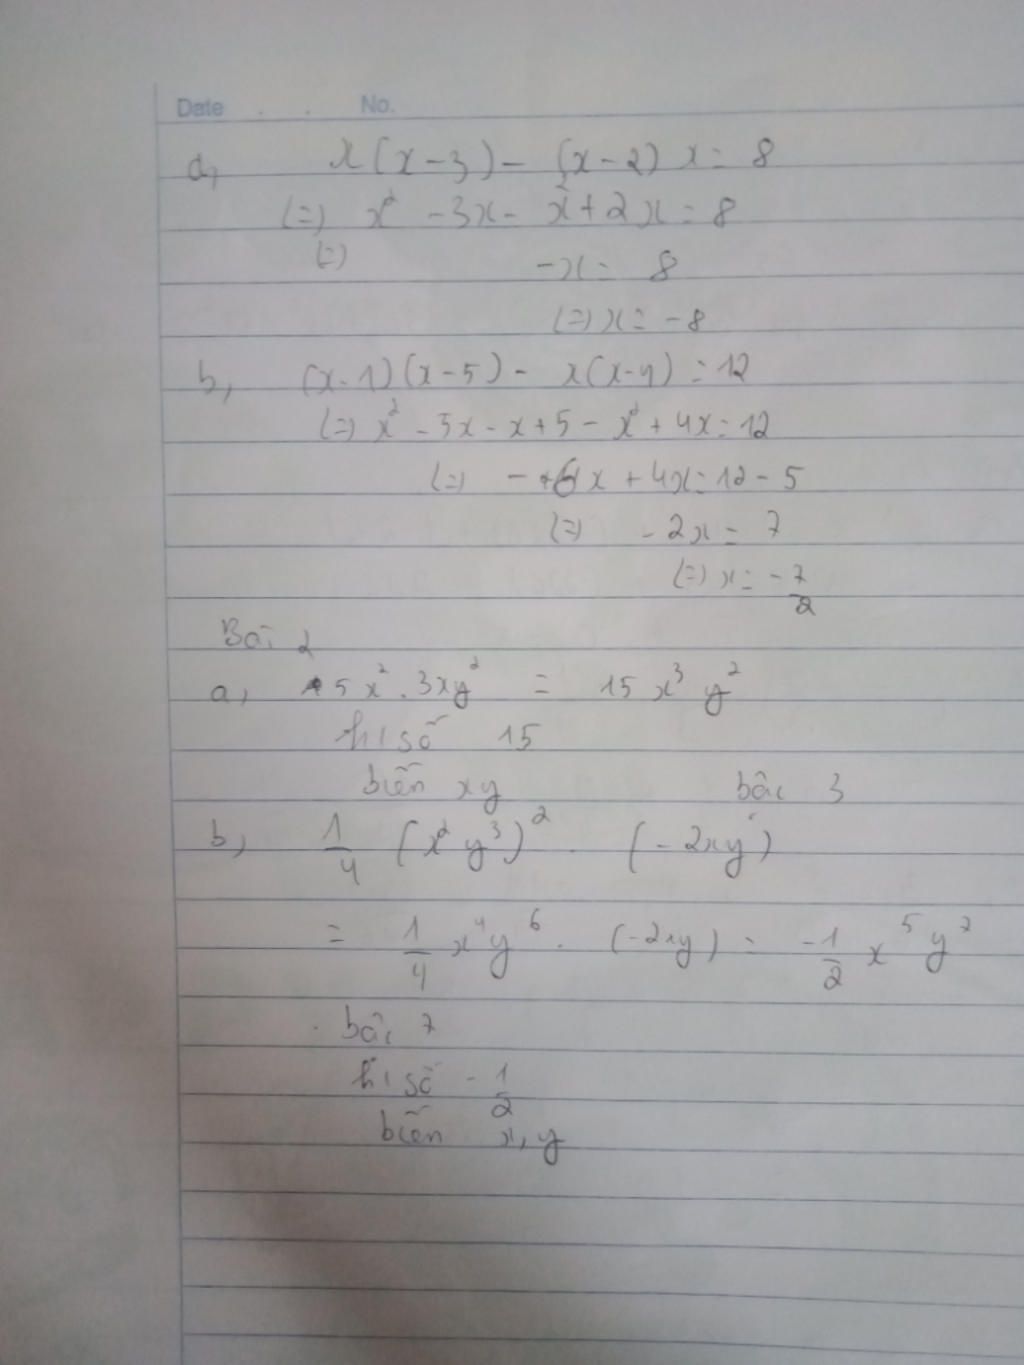 Date . . No.
a, x(x-3) - (x-2)x = 8
(=) x² - 3x - x² + 2x = 8
(=) -x = 8
(=) x = -8
b, (x-1)(x-5) - x(x-4) = 12
(=) x² - 5x - x + 5 - x² + 4x = 12
(=) - 6x + 4x = 12 - 5
(=) - 2x = 7
(=) x = -7/2
Bài 2
a, 5x² . 3xy² = 15x³y²
hệ số 15
biến xy bậc 3
b, 1/4 (x²y³)² . (-2xy)
= 1/4 x⁴y⁶ . (-2xy) = -1/2 x⁵y⁷
bậc 7
hệ số -1/2
biến x, y